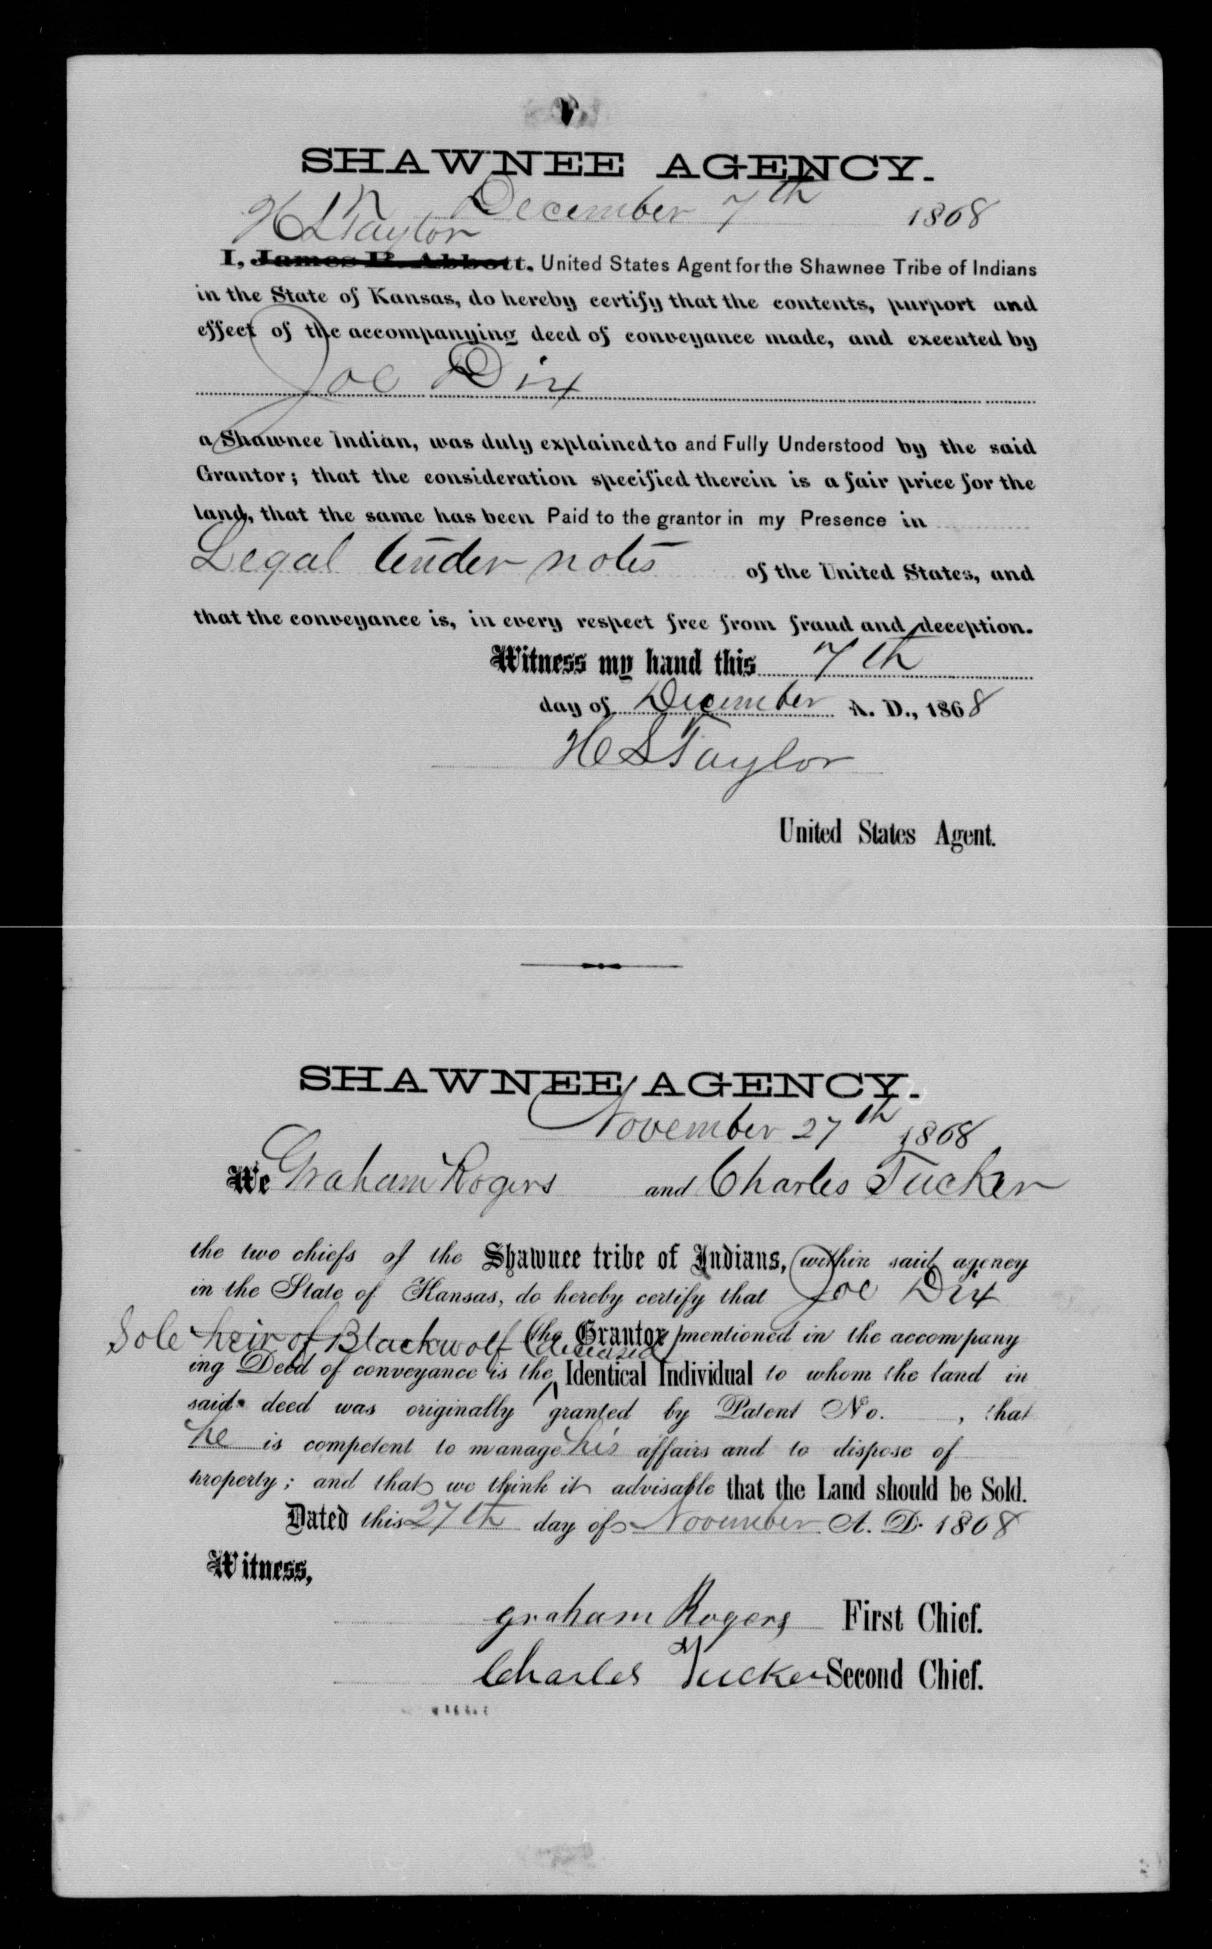 SHAWNEE AGENCY.
December 7th 1868
H L Taylor
I, James B. Abbott, United States Agent for the Shawnee Tribe of Indians
in the State of Kansas, do hereby certify that the contents, purport and
effect of the accompanying deed of conveyance made, and executed by
Joe Dix
a Shawnee Indian, was duly explained to and Fully Understood by the said
Grantor; that the consideration specified therein is a fair price for the
land, that the same has been Paid to the grantor in my Presence in
Legal tender notes of the United States, and
that the conveyance is, in every respect free from fraud and deception.
Witness my hand this 7th
day of December A. D., 1868
H L Taylor
United States Agent.
SHAWNEE AGENCY.
November 27th 1868
We Graham Rogers and Charles Tucker
the two chiefs of the Shawnee tribe of Indians, within said agency
in the State of Kansas, do hereby certify that Joe Dix
Sole heir of Blackwolf (deceased) the Grantor mentioned in the accompany
ing Deed of conveyance is the Identical Individual to whom the land in
said deed was originally granted by Patent No. , that
he is competent to manage his affairs and to dispose of
property; and that we think it advisable that the Land should be Sold.
Dated this 27th day of November A. D. 1868
Witness,
Graham Rogers First Chief.
Charles Tucker Second Chief.